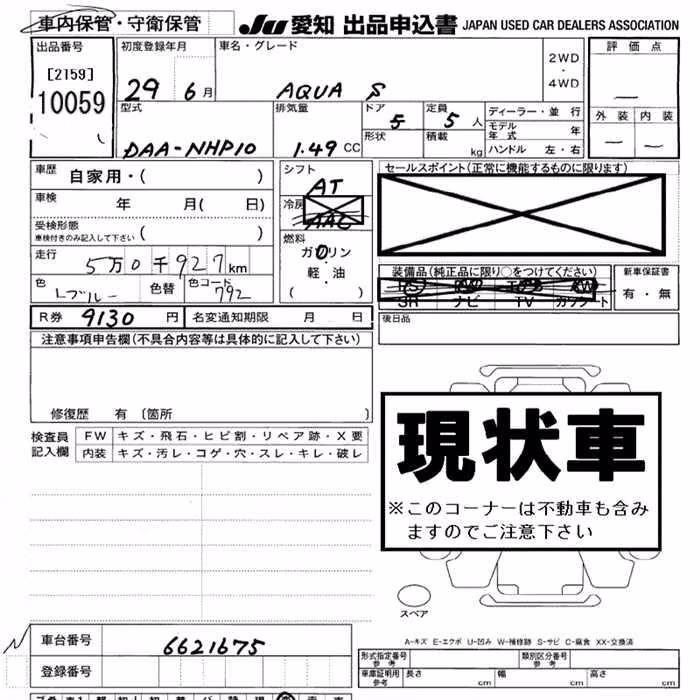 車内保管・守衛保管
JU 愛知 出品申込書 JAPAN USED CAR DEALERS ASSOCIATION
出品番号
[2159]
10059
初度登録年月
29 6月
車名・グレード
AQUA S
2WD
・
4WD
評価点
外装 内装
型式
DAA-NHP10
排気量
1.49 CC
ドア
5
形状
定員
5 人
積載
kg
ディーラー・並行
モデル年式 年
ハンドル 左・右
車歴 自家用・( )
車検 年 月( 日)
受検形態
車検付きのみ記入して下さい ( )
走行 5万0千927km
色 Lブルー 色替 色コード 792
シフト
AT
冷房
AAC
燃料
ガソリン
軽・油
( )
セールスポイント(正常に機能するものに限ります)
装備品(純正品に限り○をつけてください)
PS PW AW
SR ナビ TV カワシート
新車保証書
有・無
後日品
R券 9130 円 名変通知期限 月 日
注意事項申告欄(不具合内容等は具体的に記入して下さい)
修復歴 有〔箇所 〕
検査員
記入欄
FW キズ・飛石・ヒビ割・リペア跡・X要
内装 キズ・汚レ・コゲ・穴・スレ・キレ・破レ
現状車
※このコーナーは不動車も含み
ますのでご注意下さい
スペア
A-キズ E-エクボ U-凹み W-補修跡 S-サビ C-腐食 XX-交換済
車台番号 6621675
登録番号
形式指定番号
参考
類別区分番号
参考
車庫証明用
参考
長さ cm 幅 cm 高さ cm